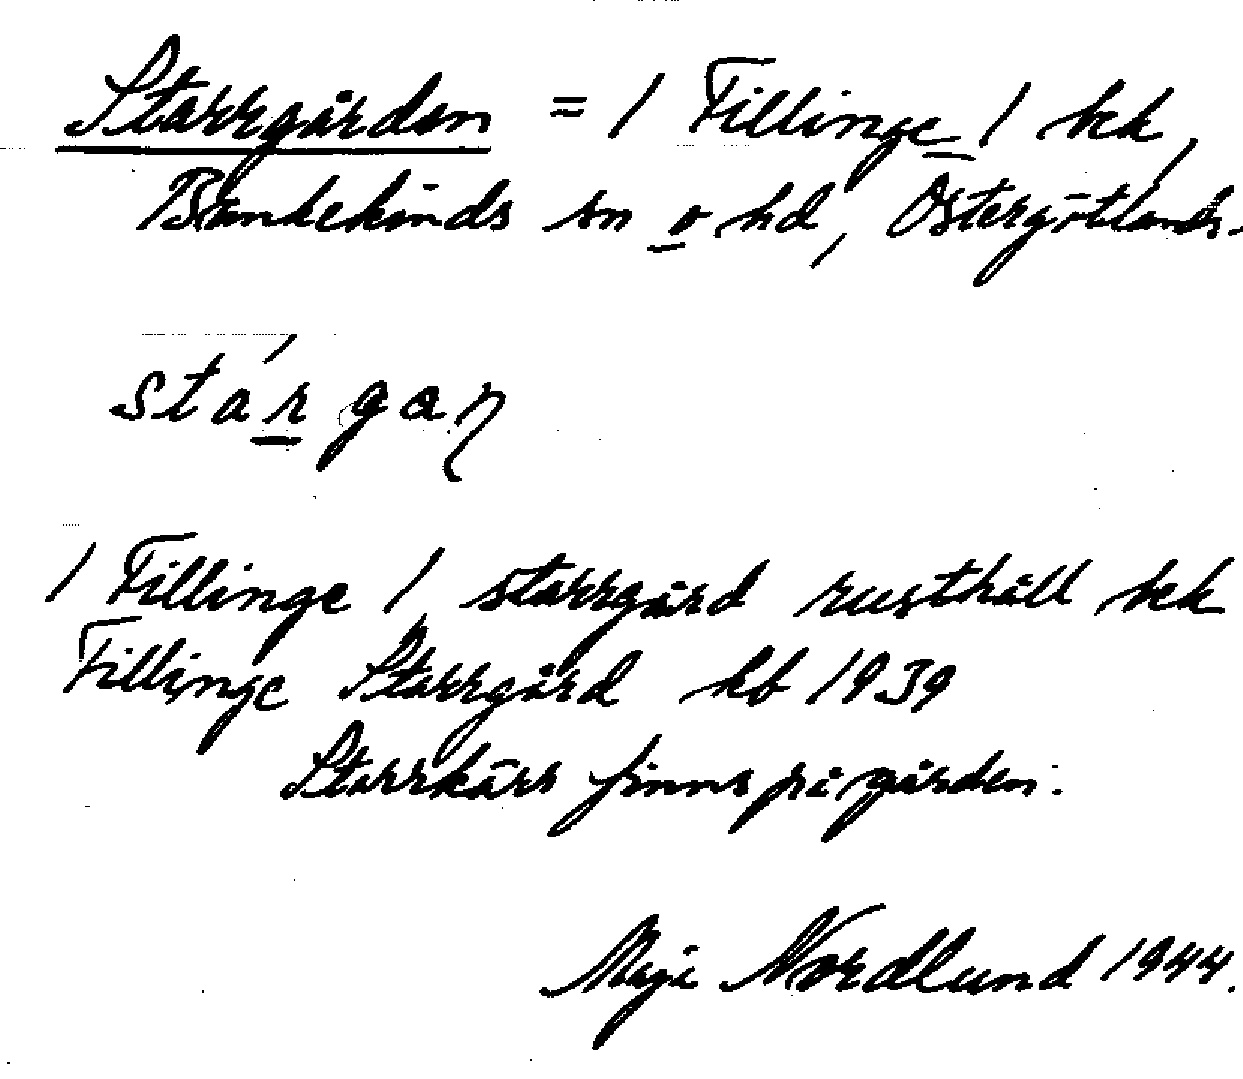 Starrgården = / Fillinge / bek,
Bankekinds sn o hd, Östergötlands.
stárgaɳ
/ Fillinge / starrgård rusthåll bek
Fillinge Starrgård kb 1939
Starrkärr finns på gården.
Maja Nordlund 1944.